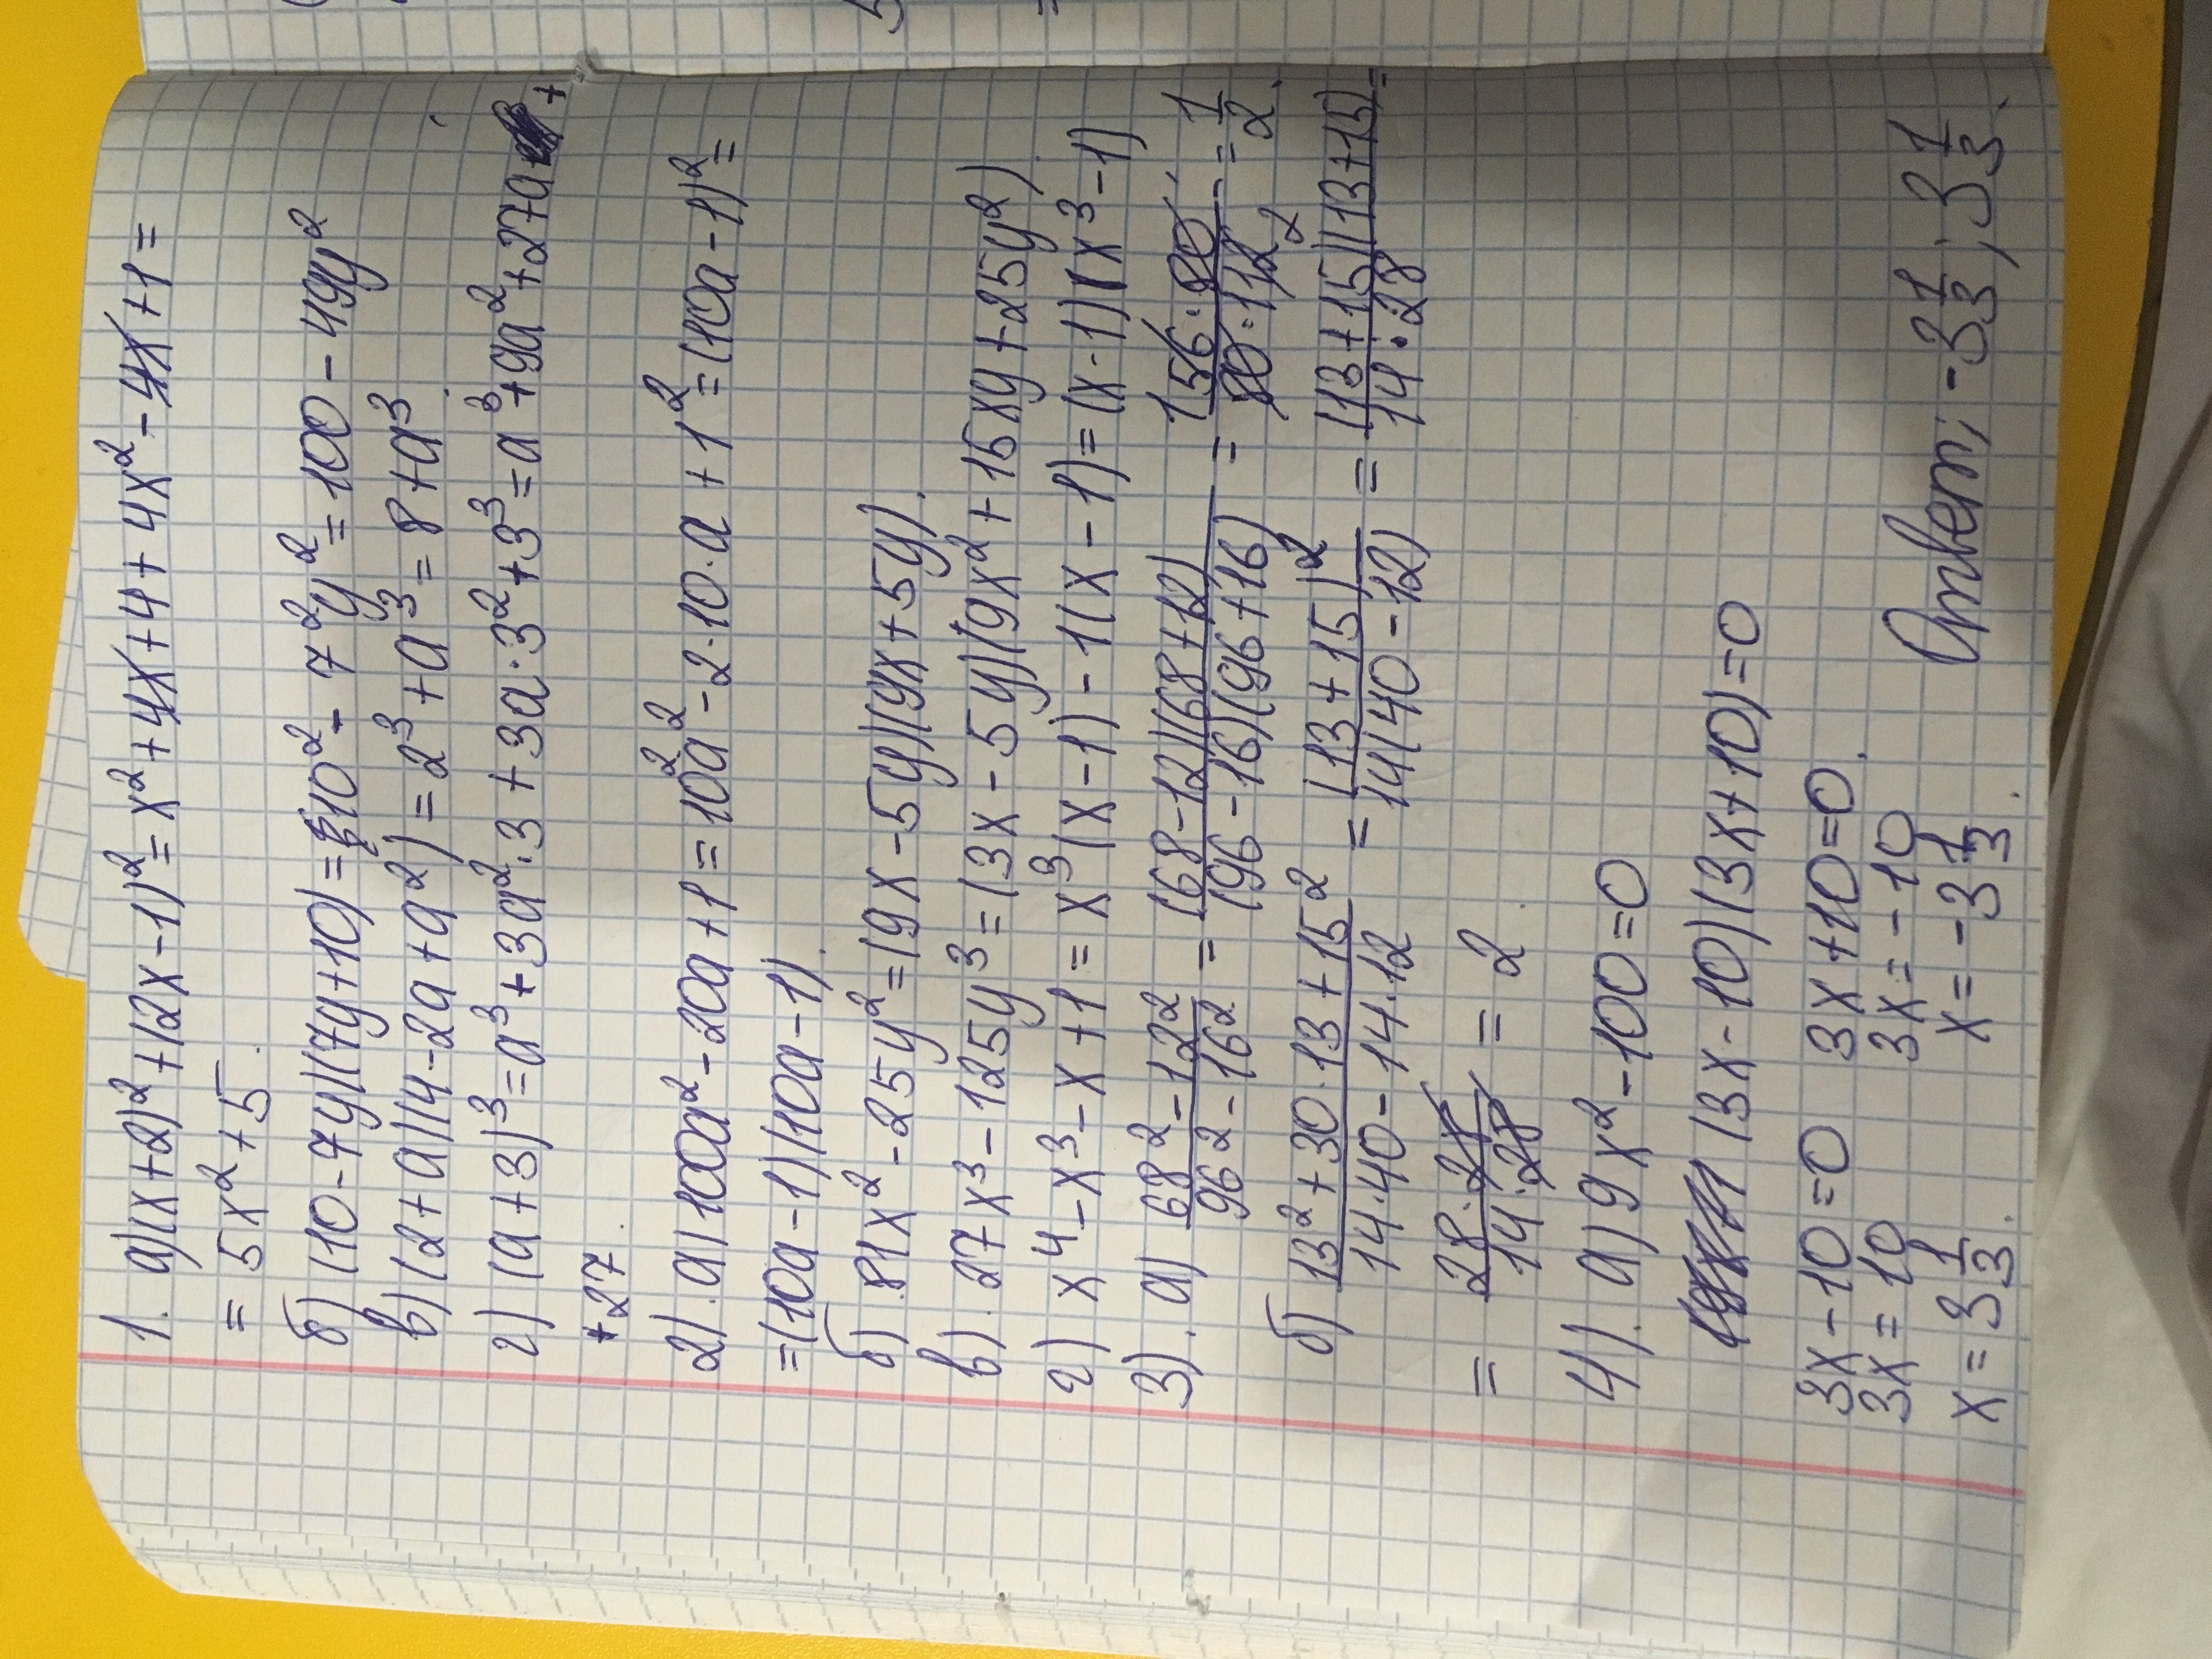 1. а)(x+2)²+(2x-1)²=x²+4x+4+4x²-4x+1=
=5x²+5.
б)(10-7y)(7y+10)=10²-7²y²=100-49y²
в)(2+a)(4-2a+a²)=2³+a³=8+a³
г)(a+3)³=a³+3a²·3+3a·3²+3³=a³+9a²+27a+
+27.
2).а)100a²-20a+1=10²a²-2·10·a+1²=(10a-1)²=
=(10a-1)(10a-1).
б).81x²-25y²=(9x-5y)(9x+5y).
в).27x³-125y³=(3x-5y)(9x²+15xy+25y²).
г)x⁴-x³-x+1=x³(x-1)-1(x-1)=(x-1)(x³-1)
3).а) (68²-12²)/(96²-16²) = (68-12)(68+12)/(96-16)(96+16) = 56·80/80·112 = 1/2.
б) (13²+30·13+15²)/(14·40-14·12) = (13+15)²/14(40-12) = (13+15)(13+15)/14·28 =
= 28·28/14·28 = 2.
4).а)9x²-100=0
(3x-10)(3x+10)=0
3x-10=0 3x+10=0.
3x=10 3x=-10
x=3 1/3. x=-3 1/3.
Ответ: -3 1/3; 3 1/3.